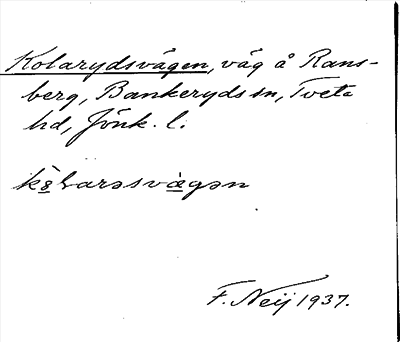 Kolarydsvägen, väg å Rans-
berg, Bankeryds sn, Tveta
hd, Jönk. l.
F. Neij 1937.